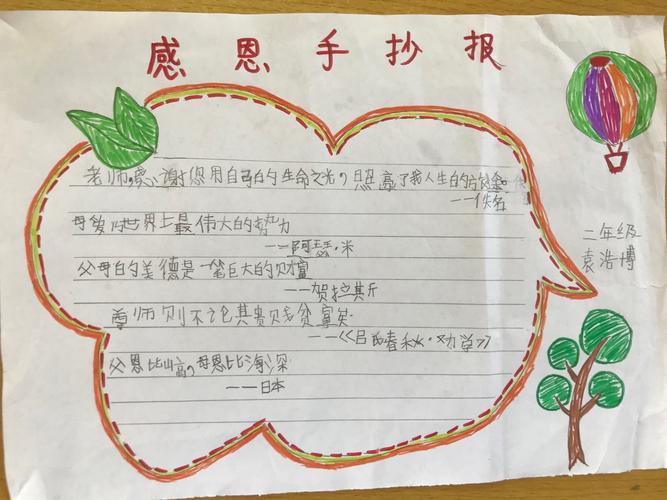 感恩手抄报
老师,感谢您用自己的生命之光,照亮了我人生的旅途。
——佚名
母爱是世界上最伟大的势力
——阿瑟·米
父母的美德是一笔巨大的财富
——贺拉其斤
尊师则不论其贵贱贫富矣
——《吕氏春秋·劝学》
父恩比山高,母恩比海深
——日本
二年级
袁浩博